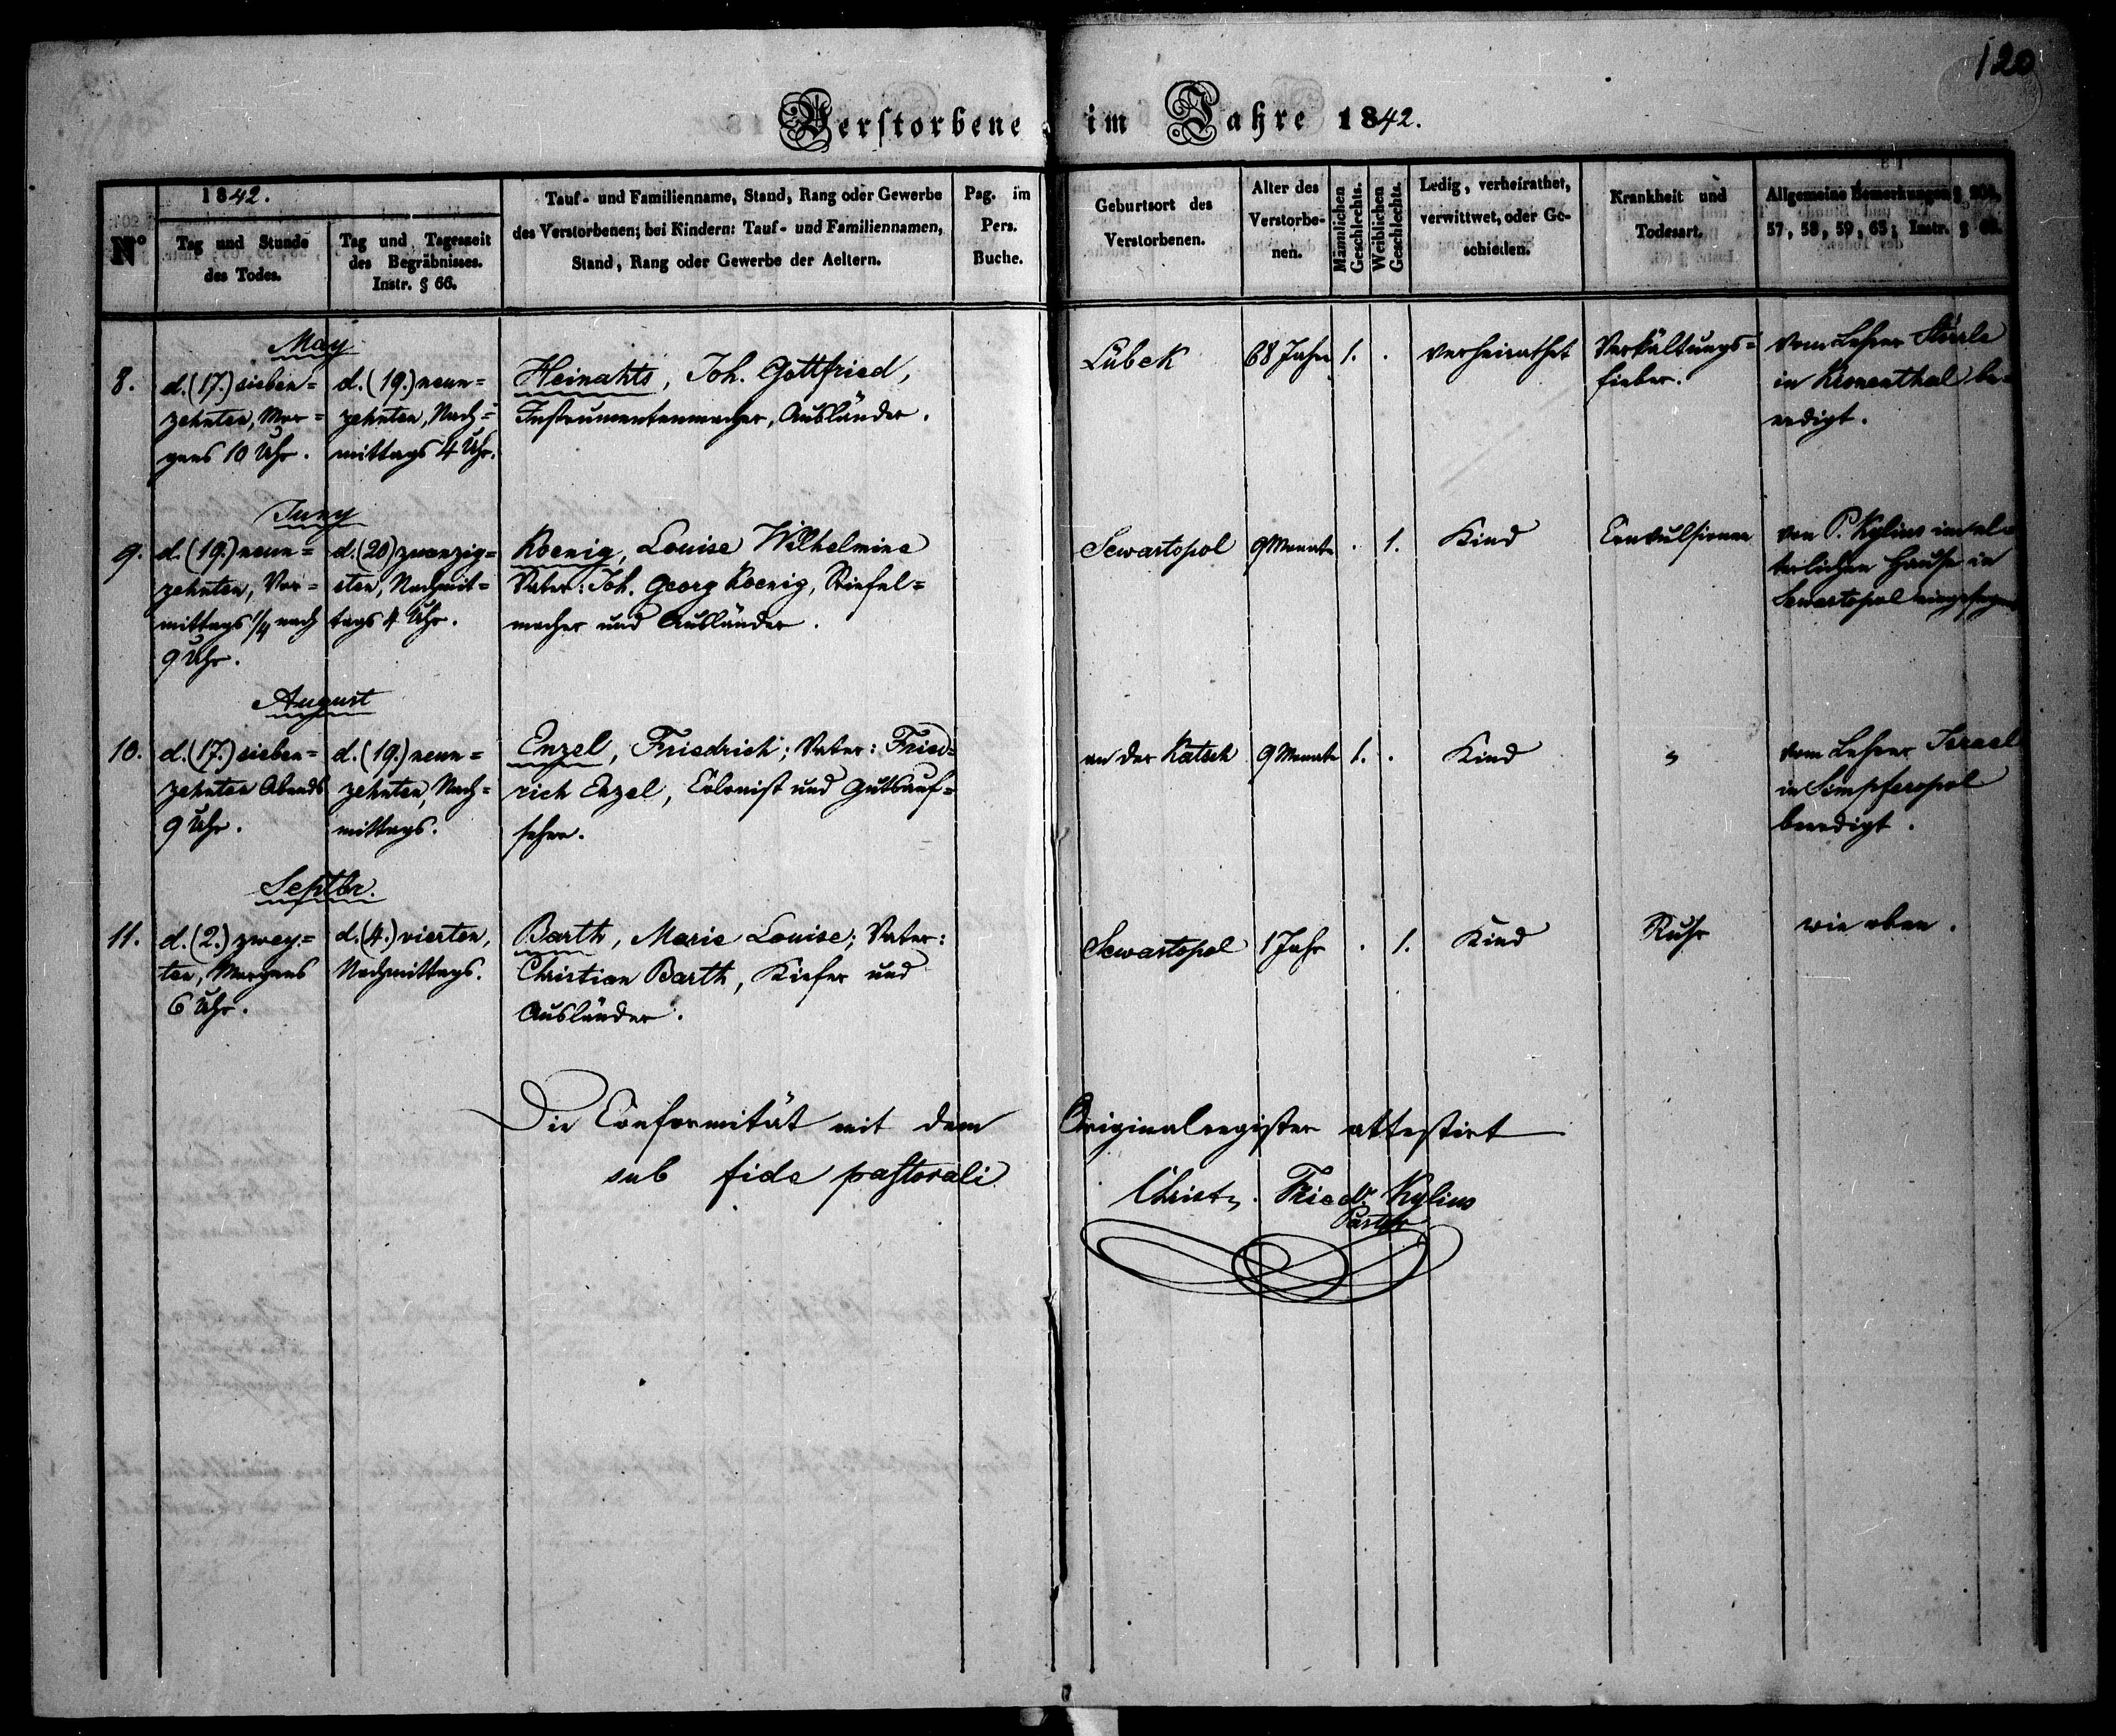 120
Verstorbene im Jahre 1842.
N°
1842.
Tag und Stunde
des Todes.
Tag und Tageszeit
des Begräbnisses.
Instr. § 66.
Tauf- und Familienname, Stand, Rang oder Gewerbe
des Verstorbenen; bei Kindern: Tauf- und Familiennamen,
Stand, Rang oder Gewerbe der Aeltern.
Pag. im
Pers.
Buche.
Geburtsort des
Verstorbenen.
Alter des
Verstorbe-
nen.
Männlichen
Geschlechts.
Weiblichen
Geschlechts.
Ledig, verheirathet,
verwittwet, oder Ge-
schieden.
Krankheit und
Todesart.
Allgemeine Bemerkungen §
57, 58, 59, 65; Instr. §
May
8.
d. (17.) sieben=
zehnten, Mor=
gens 10 Uhr.
d. (19.) neun=
zehnten, Nach=
mittags 4 Uhr.
Heinahts, Joh. Gottfried,
Instrumentenmacher, Ausländer.
Lübek
68 Jahre
1.
.
verheirathet
Verkältungs=
fieber.
vom Lehrer
in Kronenthal be=
erdigt.
Juny
9.
d. (19.) neun=
zehnten, Vor=
mittags 1/4 nach
9 Uhr.
d. (20) zwanzig=
sten, Nachmit=
tags 4 Uhr.
Koenig, Louise Wilhelmine
Vater: Joh. Georg Koenig, Stiefel=
macher und Ausländer.
Sewastopol
9 Monate
.
1.
Kind
Convulsionen
von P. Kylius im el=
terlichen Hause in
Sewastopol eingesegnet
August
10.
d. (17.) sieben=
zehnten Abends
9 Uhr.
d. (19.) neun=
zehnten, Nach=
mittags.
Enzel, Friedrich; Vater: Fried=
rich Enzel, Colonist und Gutsauf=
seher.
an der Katsch
9 Monate
1.
.
Kind
"
vom Lehrer Israel
in Simpferopol
beerdigt.
Septbr.
11.
d. (2.) zwey=
ten, Morgens
6 Uhr.
d. (4.) vierten,
Nachmittags.
Barth, Marie Louise; Vater:
Christian Barth, Kiefer und
Ausländer.
Sewastopol
1 Jahr
.
1.
Kind
Ruhr
wie oben.
Die Conformität mit dem Originalregister attestirt
sub fide pastorali
Christ. Friedr. Kylius
Pastor